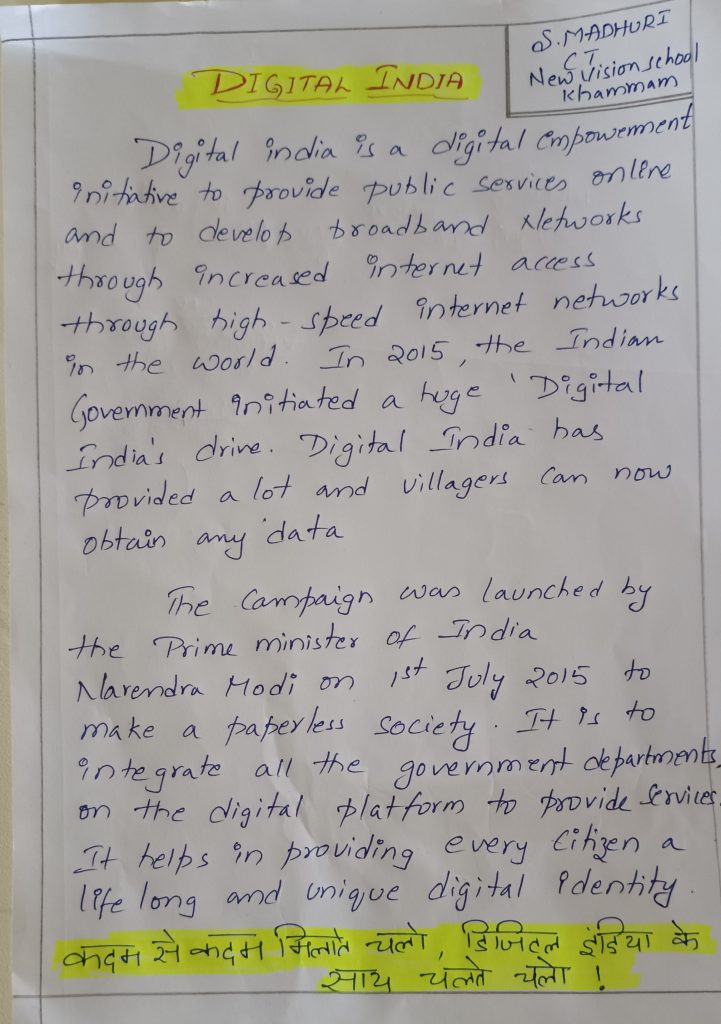 S. MADHURI
CT
New Vision school
Khammam
DIGITAL INDIA
Digital india is a digital empowerment
initiative to provide public services online
and to develop broadband Networks
through increased internet access
through high - speed internet networks
in the world. In 2015, the Indian
Government initiated a huge ' Digital
India's drive. Digital India has
provided a lot and villagers can now
obtain any data
The Campaign was launched by
the Prime minister of India
Narendra Modi on 1st July 2015 to
make a paperless society. It is to
integrate all the government departments,
on the digital platform to provide Services.
It helps in providing every Citizen a
life long and unique digital identity.
कदम से कदम मिलाते चलो, डिजिटल इंडिया के
साथ चलते चलो !